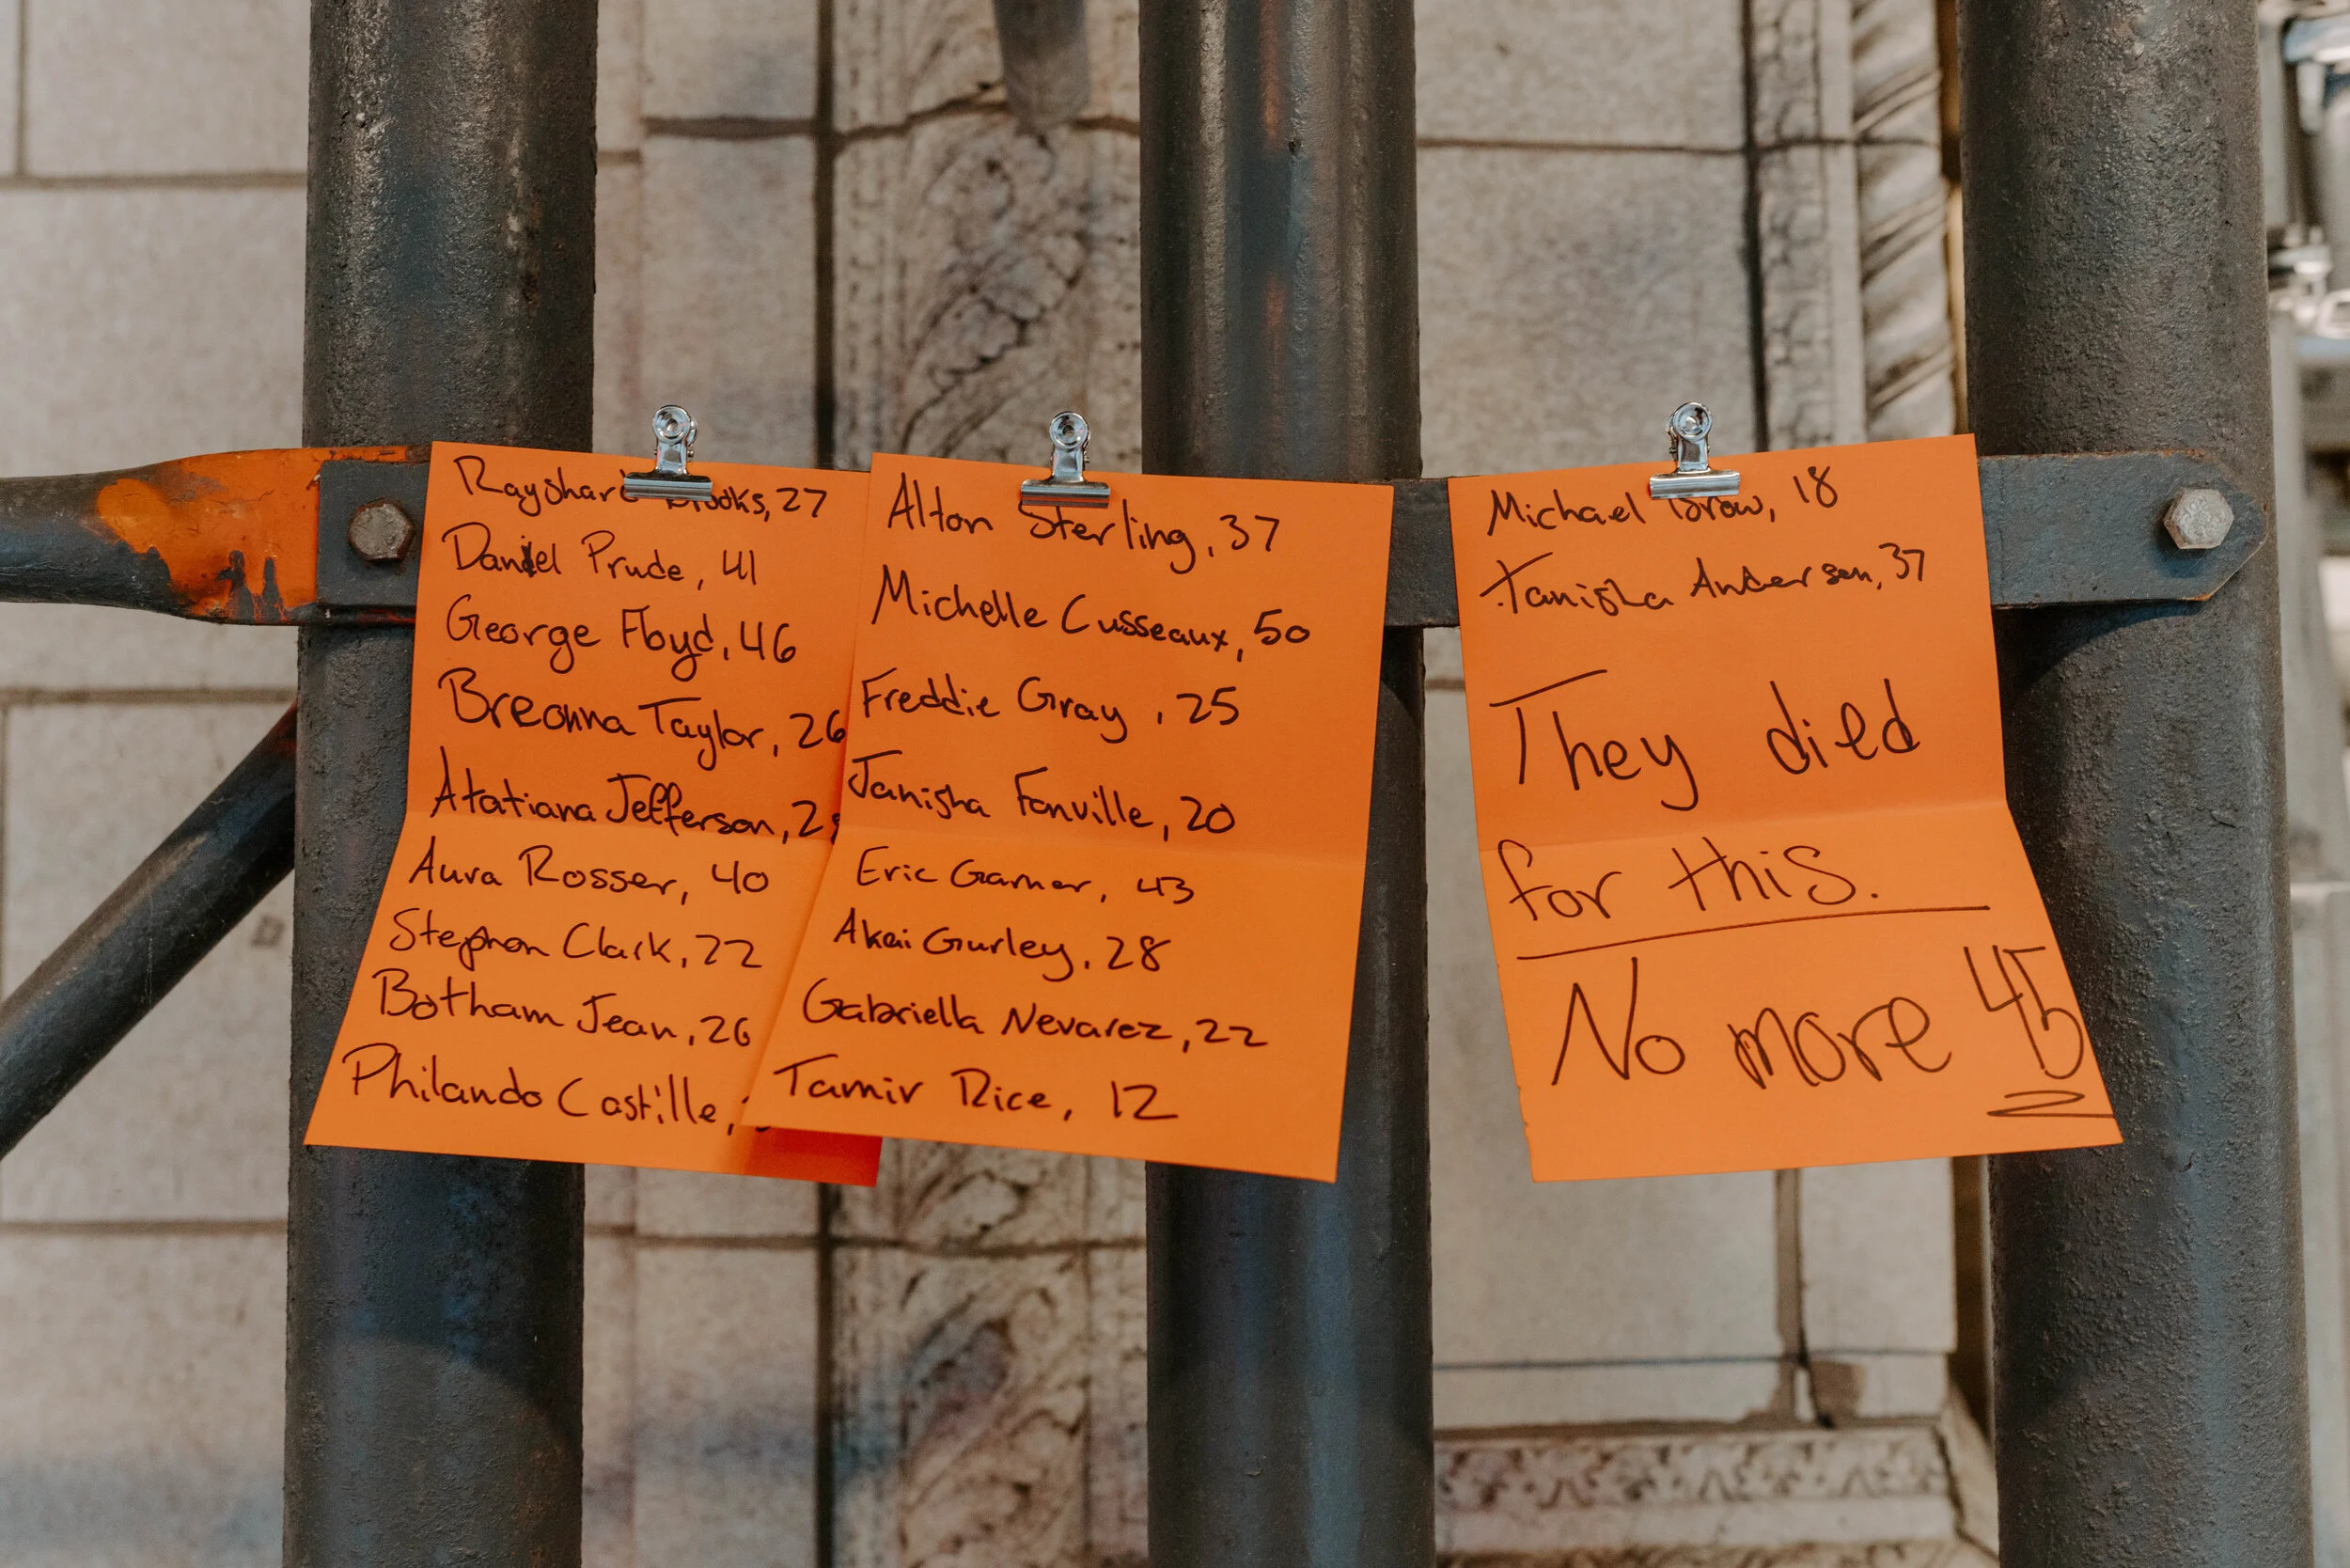 Rayshard Brooks, 27
Daniel Prude, 41
George Floyd, 46
Breonna Taylor, 26
Atatiana Jefferson,
Aura Rosser, 40
Stephon Clark, 22
Botham Jean, 26
Philando Castille,
Alton Sterling, 37
Michelle Cusseaux, 50
Freddie Gray, 25
Janisha Fonville, 20
Eric Garner, 43
Akai Gurley, 28
Gabriella Nevarez, 22
Tamir Rice, 12
Michael Brow, 18
Tanisha Anderson, 37
They died
for this.
No more 45